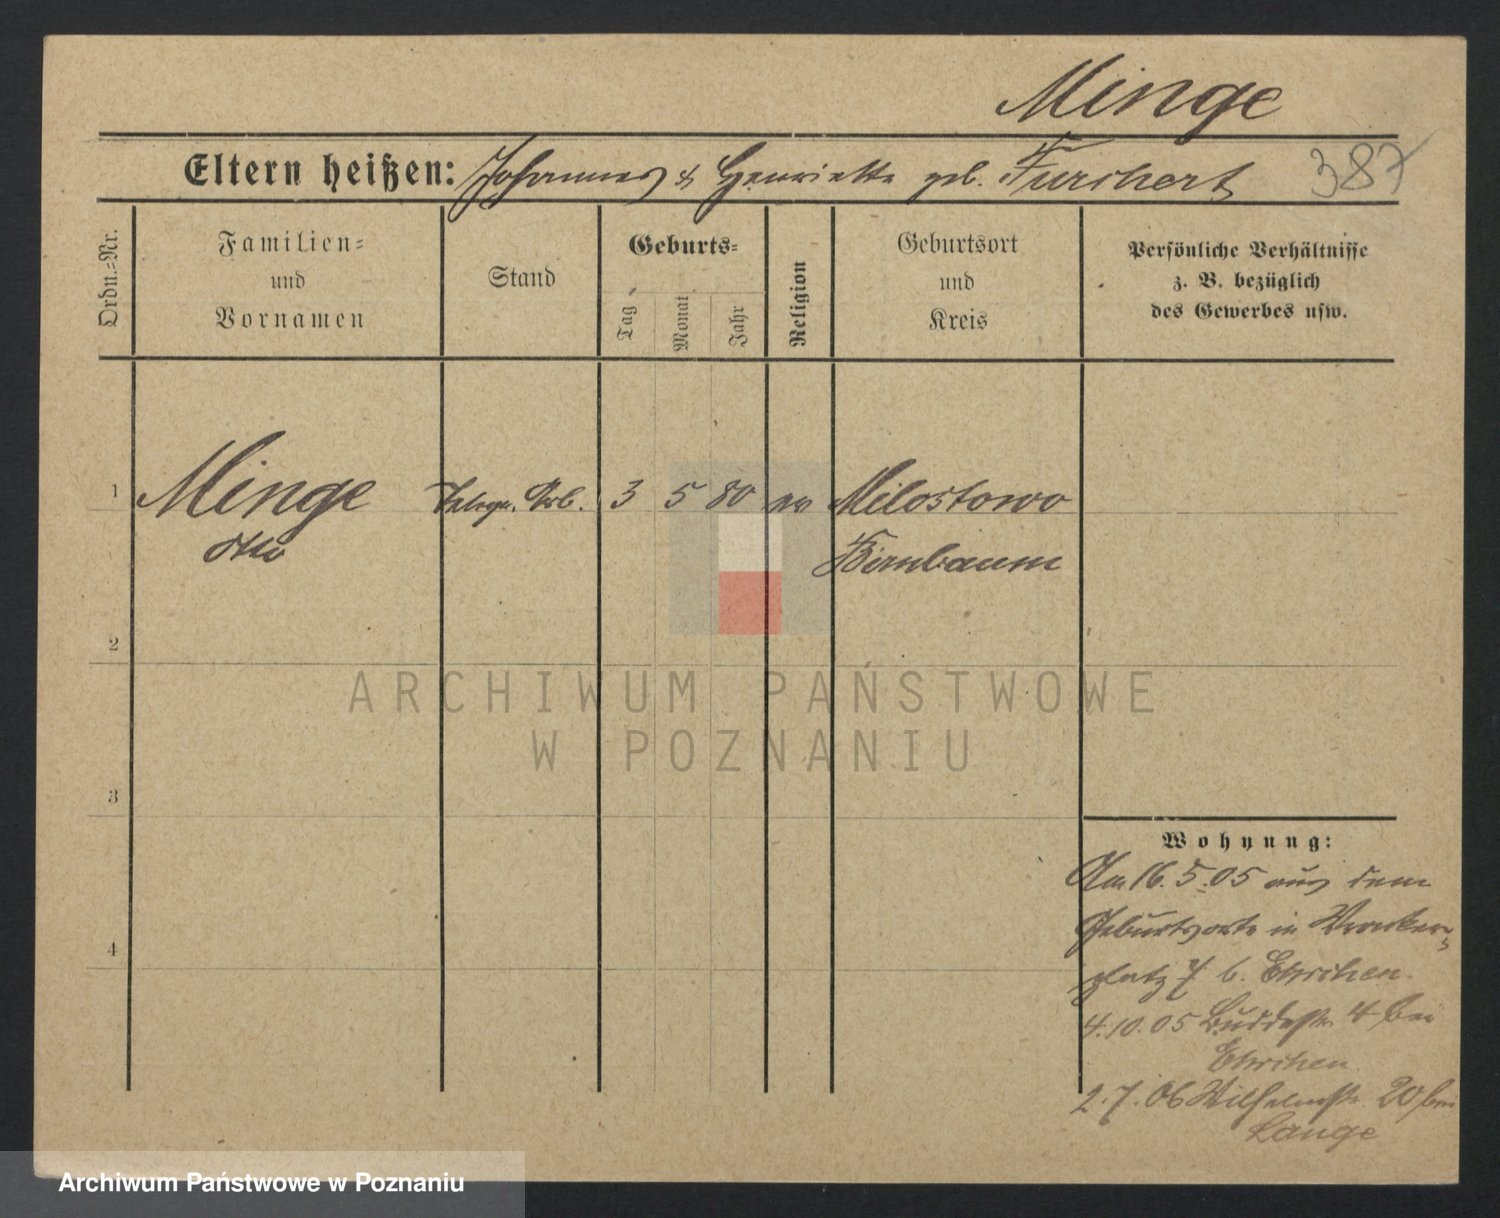 Minge
Eltern heißen: Johannes & Henriette geb. Furchert
387
Ordn.-Nr.
Familien-
und
Vornamen
Stand
Geburts-
Tag
Monat
Jahr
Religion
Geburtsort
und
Kreis
Persönliche Verhältnisse
z. B. bezüglich
des Gewerbes usw.
1 Minge Telegr. Arb. 3 5 80 ev Milostowo
Otto Birnbaum
2
3
4
Wohnung:
Am 16.5.05 aus dem
Geburtsorte in Wronker-
platz 7 b.
4.10.05 Buddestr 4 bei
2.7.06 Wilhelmstr 20 bei
Lange
ARCHIWUM PAŃSTWOWE
W POZNANIU
Archiwum Państwowe w Poznaniu